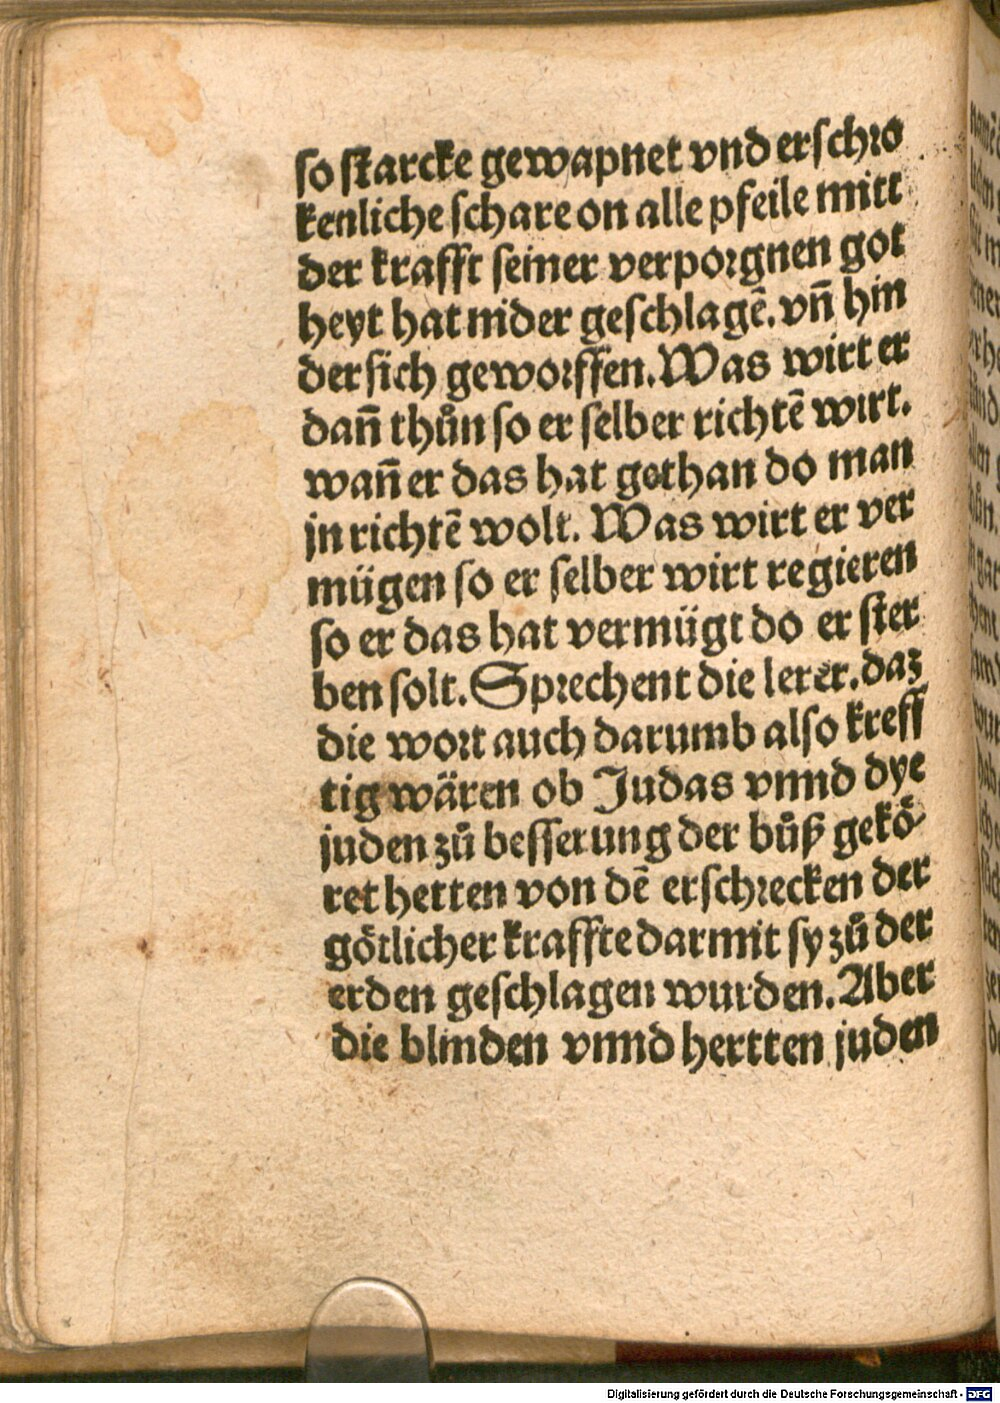 so starcke gewapnet vnd erschro
kenliche schare on alle pfeile mitt
der krafft seiner verporgnen got
heyt hat nider geschlagē. vn̄ hin
der sich geworffen. Was wirt er
dan̄ thůn so er selber richtē wirt.
wan̄ er das hat gethan do man
jn richtē wolt. Was wirt er ver
mügen so er selber wirt regieren
so er das hat vermügt do er ster
ben solt. Sprechent die lerer. daz
die wort auch darumb also kreff
tig wären ob Judas vnnd dye
juden zů besserung der bůß gekö⸗
ret hetten von dē erschrecken der
götlicher krafft darmit sy zů der
erden geschlagen wurden. Aber
die blinden vnnd hertten juden
Digitalisierung gefördert durch die Deutsche Forschungsgemeinschaft - DFG